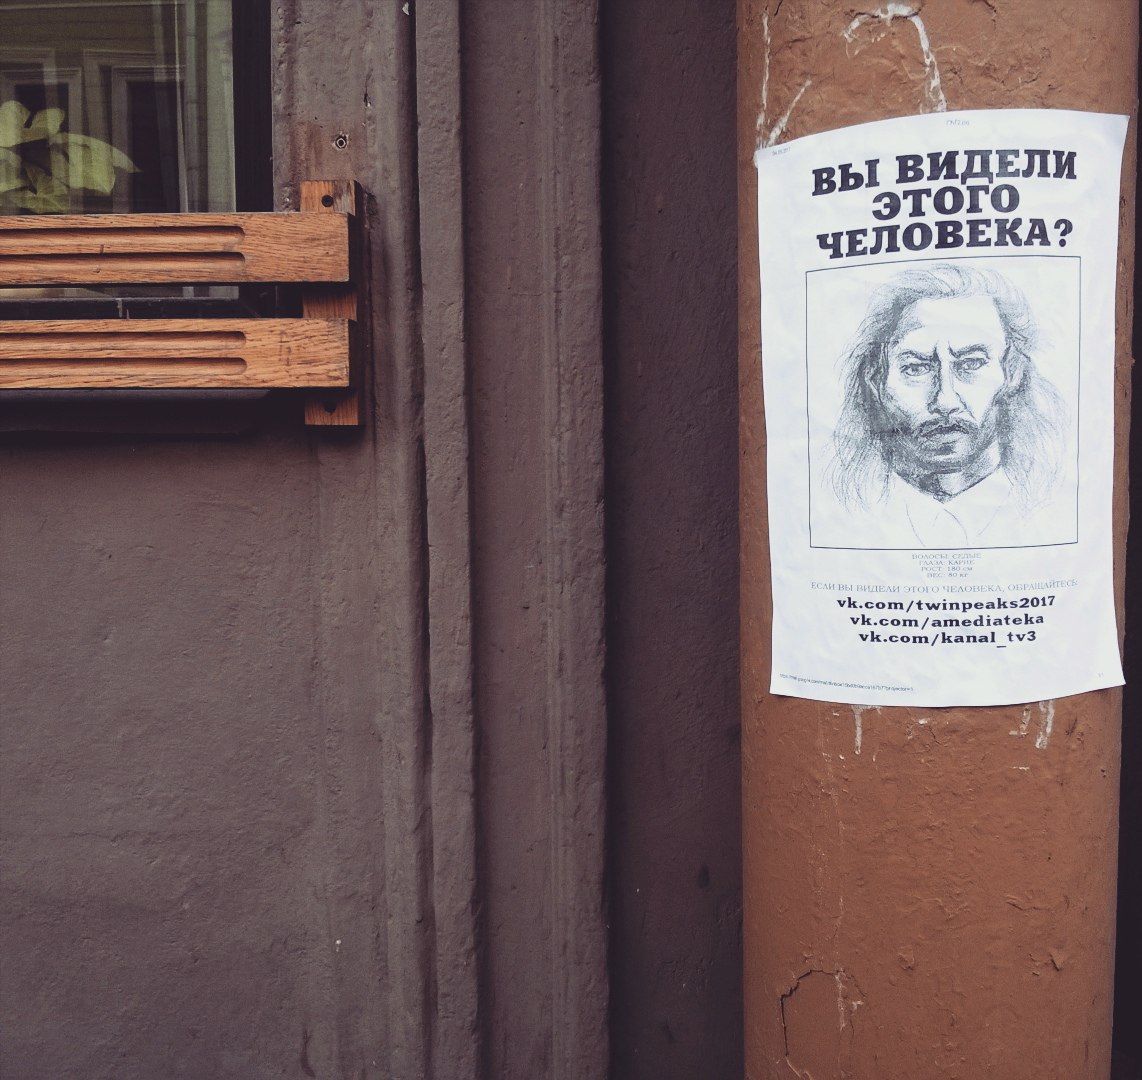 ВЫ ВИДЕЛИ
ЭТОГО
ЧЕЛОВЕКА?
ВОЛОСЫ: СЕДЫЕ
ГЛАЗА: КАРИЕ
РОСТ: 180 см
ВЕС: 80 кг
ЕСЛИ ВЫ ВИДЕЛИ ЭТОГО ЧЕЛОВЕКА, ОБРАЩАЙТЕСЬ:
vk.com/twinpeaks2017
vk.com/amediateka
vk.com/kanal_tv3